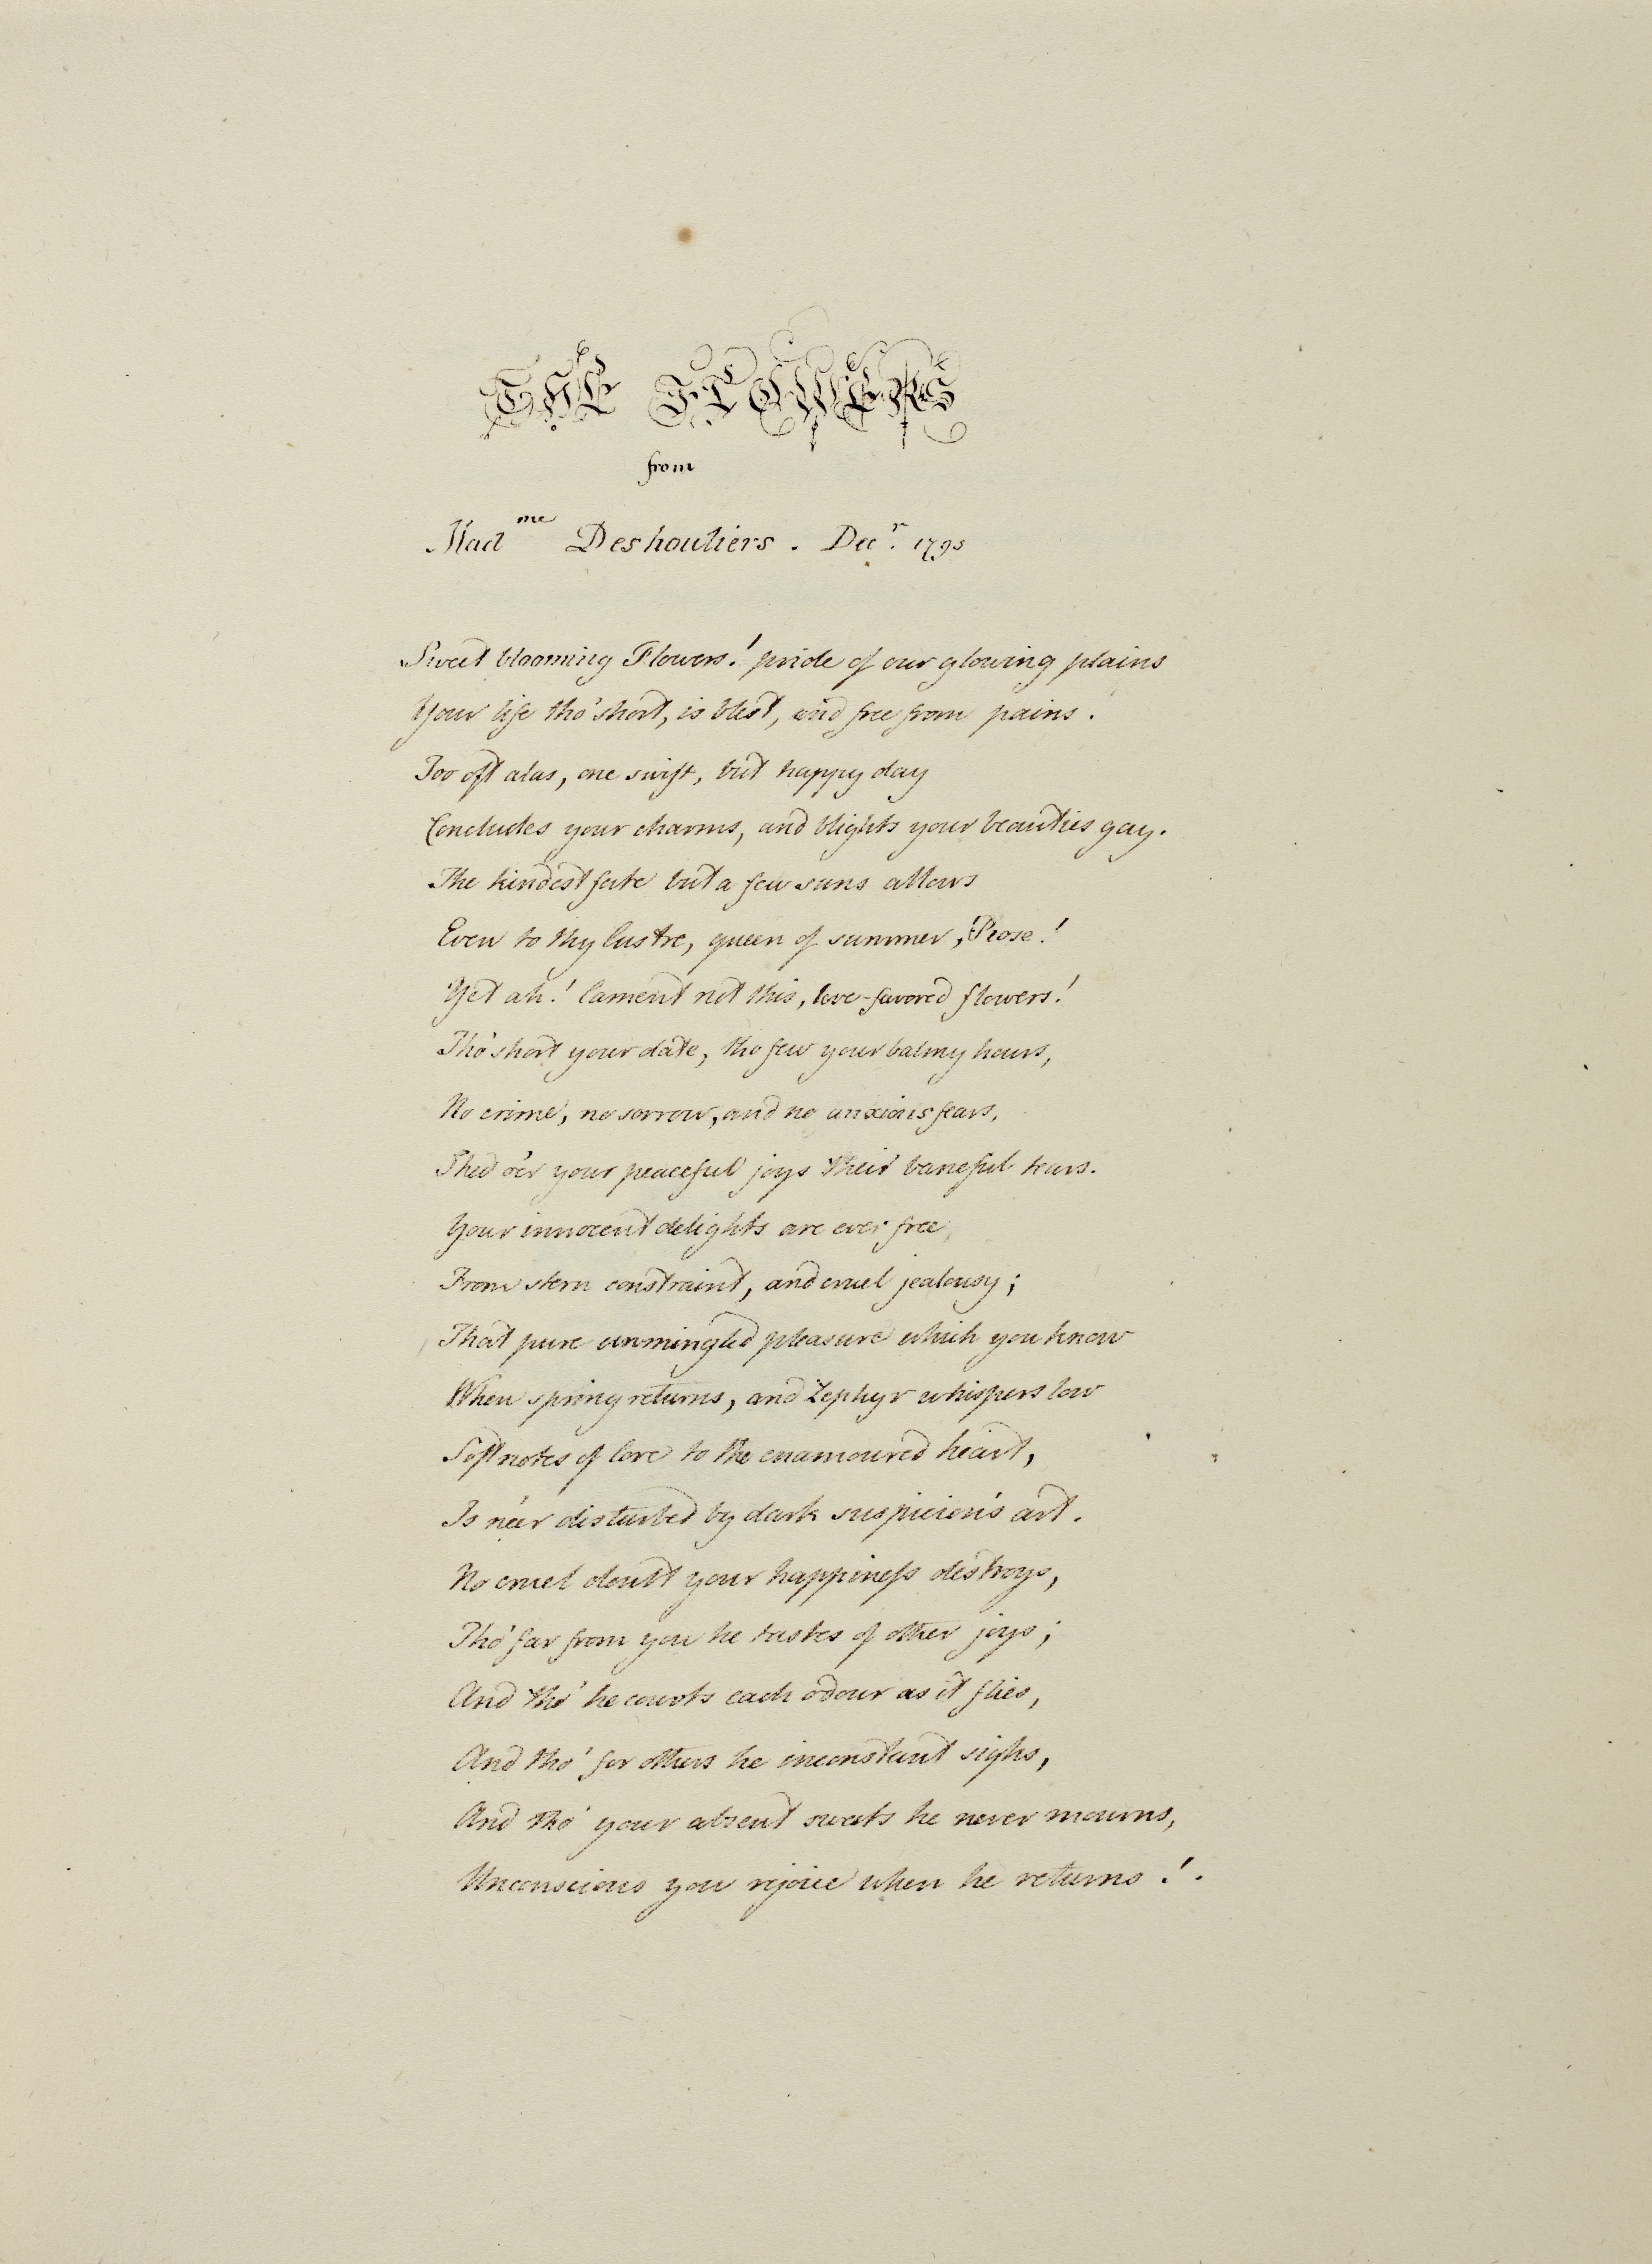 THE FLOWERS
from
Mad.me Deshouliers. Decr. 1795
Sweet blooming Flowers! pride of our glowing plains
Your life tho' short, is blest, and free from pains.
Too oft alas, one swift, but happy day
Concludes your charms, and blights your beauties gay.
The kindest fate but a few suns allows
Even to thy lustre, queen of summer, Rose!
Yet ah! lament not this, love-favored flowers!
Tho' short your date, tho few your balmy hours,
No crime, no sorrow, and no anxious fears,
Shed o'er your peaceful joys their baneful tears.
Your innocent delights are ever free
From stern constraint, and cruel jealousy;
That pure unmingled pleasure which you know
When spring returns, and Zephyr whispers low
Soft notes of love to the enamoured heart,
Is ne'er disturbed by dark suspicion's art.
No cruel doubt your happiness destroys,
Tho' far from you he tastes of other joys;
And tho' he courts each odour as it flies,
And tho' for others he inconstant sighs,
And tho' your absent sweets he never mourns,
Unconscious you rejoice when he returns!.